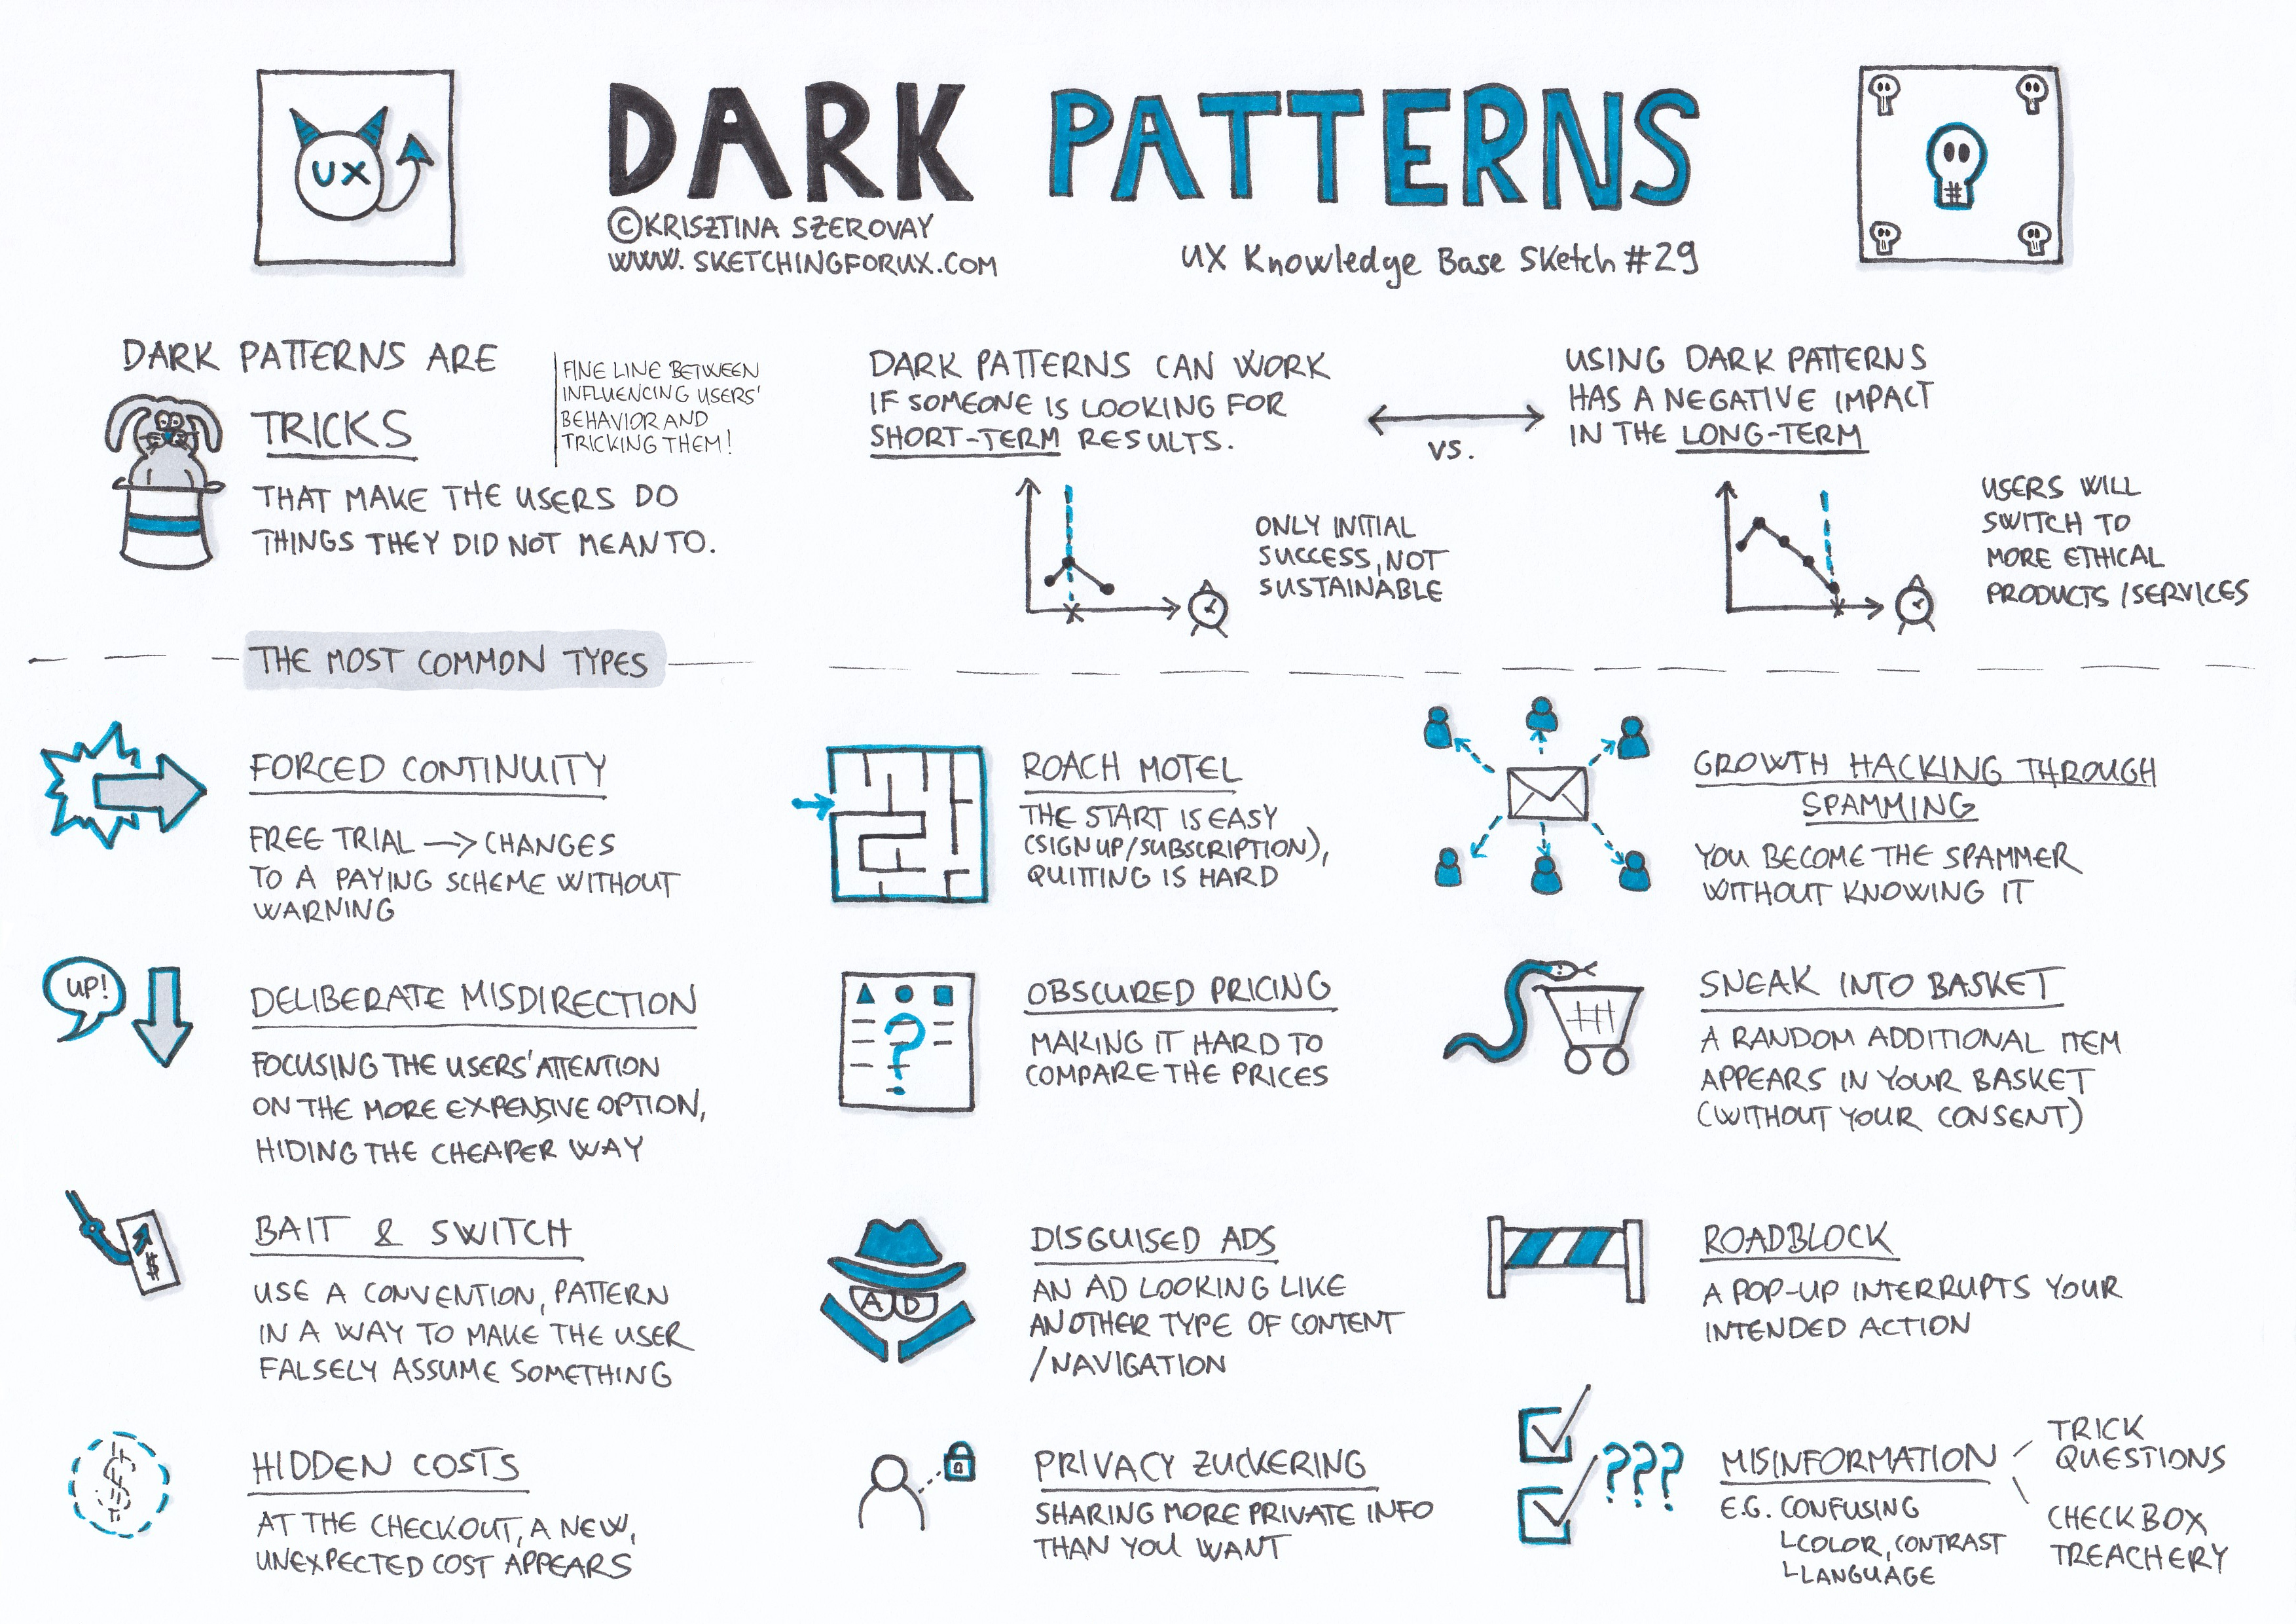 UX
DARK PATTERNS
©KRISZTINA SZEROVAY
WWW.SKETCHINGFORUX.COM
UX Knowledge Base Sketch #29
DARK PATTERNS ARE
TRICKS
THAT MAKE THE USERS DO
THINGS THEY DID NOT MEAN TO.
FINE LINE BETWEEN
INFLUENCING USERS'
BEHAVIOR AND
TRICKING THEM!
DARK PATTERNS CAN WORK
IF SOMEONE IS LOOKING FOR
SHORT-TERM RESULTS.
VS.
USING DARK PATTERNS
HAS A NEGATIVE IMPACT
IN THE LONG-TERM
ONLY INITIAL
SUCCESS, NOT
SUSTAINABLE
USERS WILL
SWITCH TO
MORE ETHICAL
PRODUCTS/SERVICES
THE MOST COMMON TYPES
FORCED CONTINUITY
FREE TRIAL → CHANGES
TO A PAYING SCHEME WITHOUT
WARNING
ROACH MOTEL
THE START IS EASY
(SIGN UP/SUBSCRIPTION),
QUITTING IS HARD
GROWTH HACKING THROUGH
SPAMMING
YOU BECOME THE SPAMMER
WITHOUT KNOWING IT
UP!
DELIBERATE MISDIRECTION
FOCUSING THE USERS' ATTENTION
ON THE MORE EXPENSIVE OPTION,
HIDING THE CHEAPER WAY
?
OBSCURED PRICING
MAKING IT HARD TO
COMPARE THE PRICES
SNEAK INTO BASKET
A RANDOM ADDITIONAL ITEM
APPEARS IN YOUR BASKET
(WITHOUT YOUR CONSENT)
$
BAIT & SWITCH
USE A CONVENTION, PATTERN
IN A WAY TO MAKE THE USER
FALSELY ASSUME SOMETHING
AD
DISGUISED ADS
AN AD LOOKING LIKE
ANOTHER TYPE OF CONTENT
/NAVIGATION
ROADBLOCK
A POP-UP INTERRUPTS YOUR
INTENDED ACTION
$
HIDDEN COSTS
AT THE CHECKOUT, A NEW,
UNEXPECTED COST APPEARS
PRIVACY ZUCKERING
SHARING MORE PRIVATE INFO
THAN YOU WANT
???
MISINFORMATION
E.G. CONFUSING
COLOR, CONTRAST
LANGUAGE
TRICK
QUESTIONS
CHECKBOX
TREACHERY